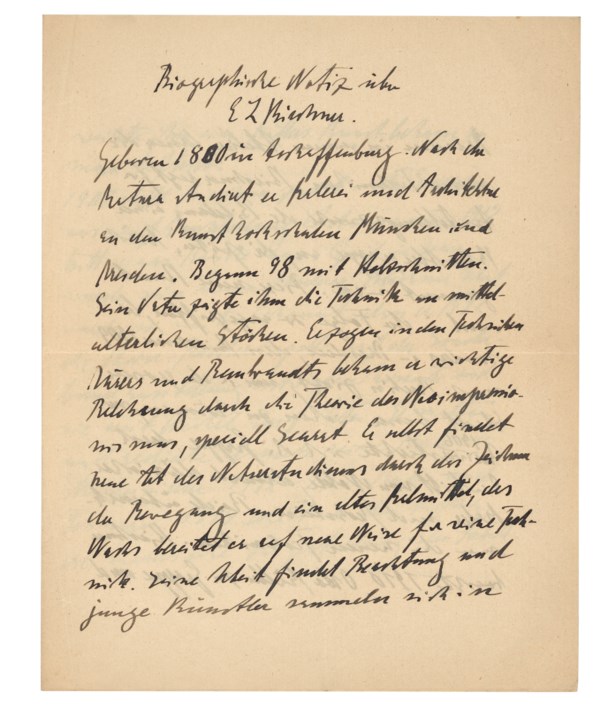 Biographische Notiz über
E L Kirchner.
Geboren 1880 in Aschaffenburg. Nach der
Matura studiert er Malerei und Architektur
an den Kunsthochschulen München und
Dresden. Begann 98 mit Holzschnitten.
Sein Vater zeigte ihm die Technik an mittel-
alterlichen Stöcken. Erzogen in den Techniken
Dürers und Rembrandts bekam er wichtige
Belehrung durch die Theorie des Neoimpressio-
nismus, speciell Seurat. Er selbst findet
neue Art des Naturstudiums durch das Zeichnen
der Bewegung und ein altes Malmittel, das
Wachs bereitet er auf neue Weise für seine Tech-
nik. Seine Arbeit findet Beachtung und
junge Künstler sammeln sich in